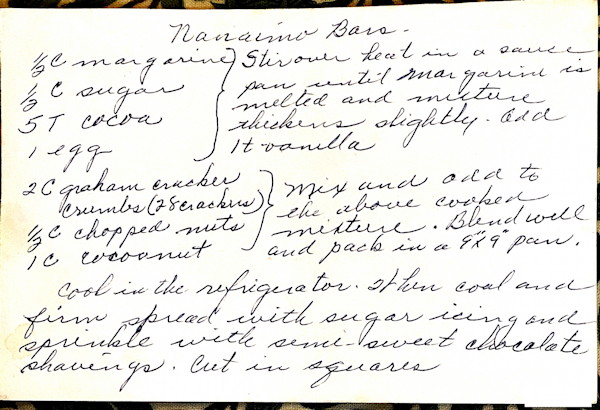 Nanaimo Bars -
½ C margarine } Stir over heat in a sauce
½ C sugar pan until margarine is
5 T cocoa melted and mixture
1 egg thickens slightly - add
1 t vanilla
2 C graham cracker } Mix and add to
crumbs (28 crackers) the above cooked
½ C chopped nuts mixture. Blend well
1 C cocoanut and pack in a 9"x9" pan.
Cool in the refrigerator. When cool and
firm spread with sugar icing and
sprinkle with semi-sweet chocolate
shavings. Cut in squares